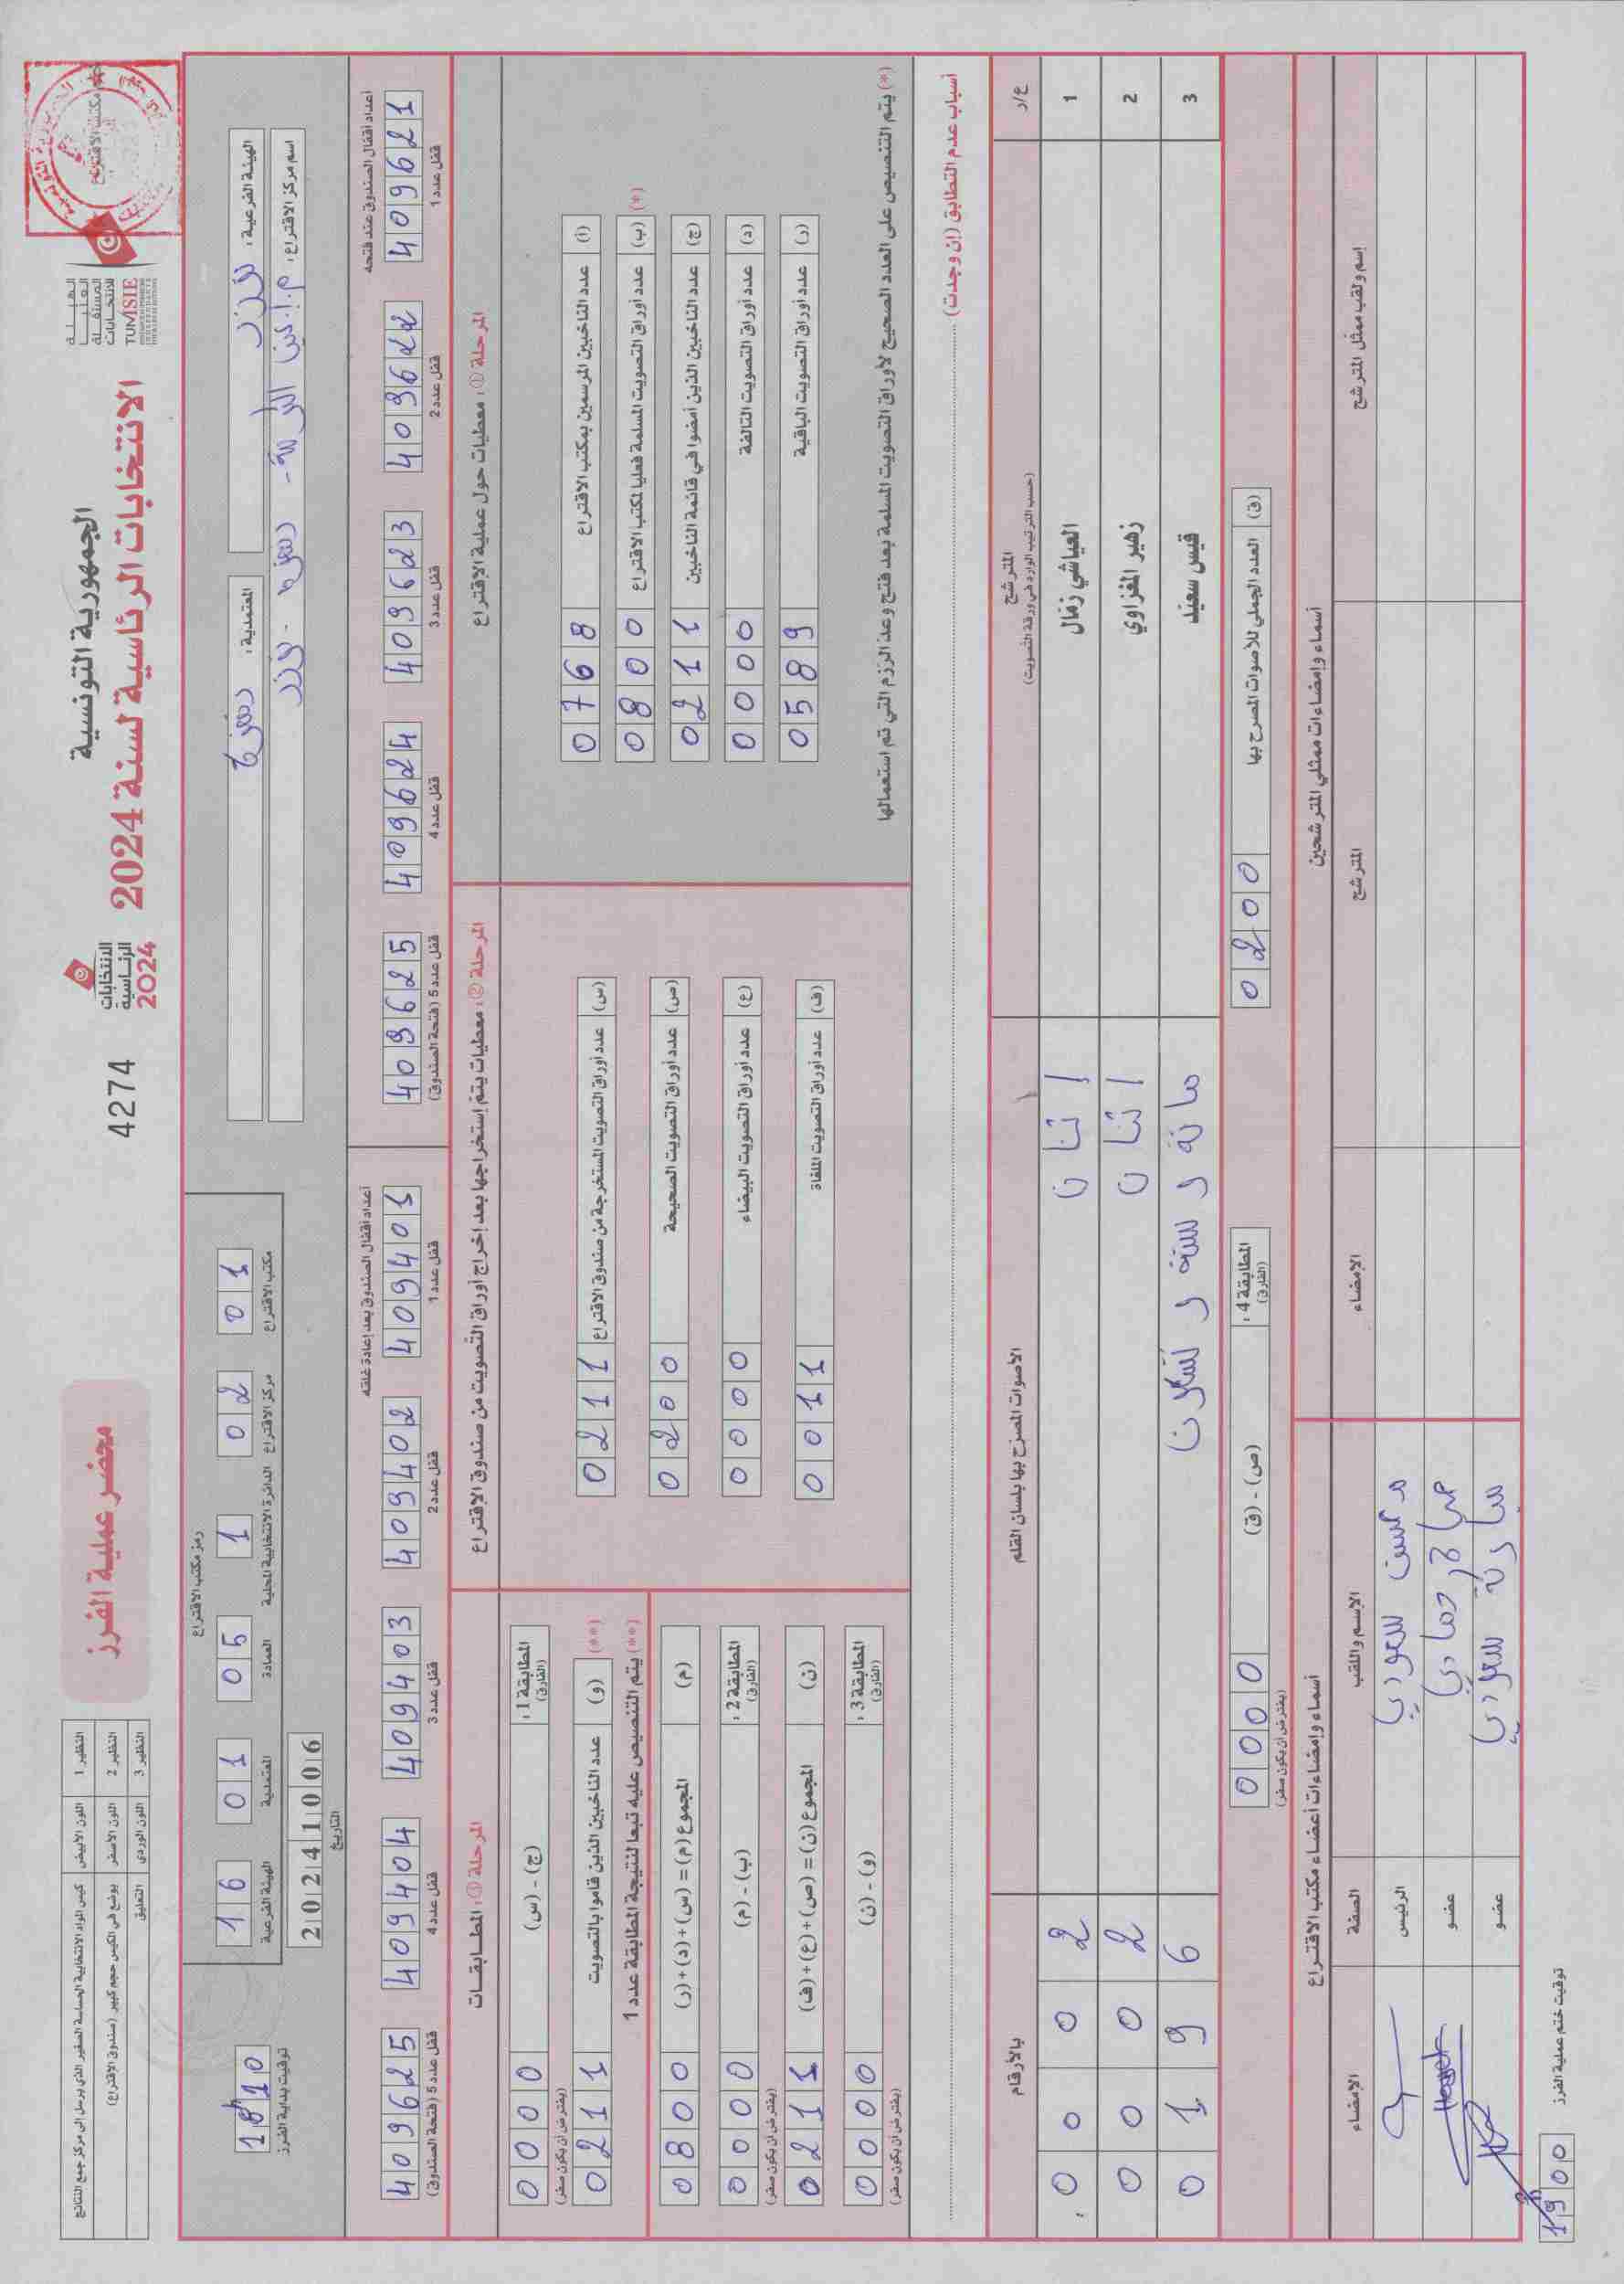 الجمهورية التونسية
الانتخابات الرئاسية لسنة 2024
الهيئة
العليا
المستقلة
للانتخابات
TUNISIE
مكتب الاقتراع
الانتخابات
الرئاسية
2024
4274
محضر عملية الفرز
النظير 1 اللون الأبيض كيس المواد الانتخابية الحساسة الصغير الذي يرسل إلى مركز جمع النتائج
النظير 2 اللون الأصفر يوضع في الكيس حجم كبير (صندوق الاقتراع)
النظير 3 اللون الوردي التعليق
الهيئة الفرعية :
المعتمدية :
اسم مركز الاقتراع :
رمز مكتب الاقتراع
16 01 05 1 02 01
الهيئة الفرعية المعتمدية العمادة الدائرة الانتخابية المحلية مركز الاقتراع مكتب الاقتراع
20241006
التاريخ
1810
توقيت بداية الفرز
أعداد أقفال الصندوق عند فتحه
409621 409622 409623 409624 409625
قفل عدد 1 قفل عدد 2 قفل عدد 3 قفل عدد 4 قفل عدد 5 (فتحة الصندوق)
أعداد أقفال الصندوق بعد إعادة غلقه
409401 409402 409403 409404 409625
قفل عدد 1 قفل عدد 2 قفل عدد 3 قفل عدد 4 قفل عدد 5 (فتحة الصندوق)
المرحلة ① : معطيات حول عملية الاقتراع
(أ) عدد الناخبين المرسمين بمكتب الاقتراع 0768
(*) (ب) عدد أوراق التصويت المسلمة فعليا لمكتب الاقتراع 0800
(ج) عدد الناخبين الذين أمضوا في قائمة الناخبين 0211
(د) عدد أوراق التصويت التالفة 0000
(ر) عدد أوراق التصويت الباقية 0589
(*) يتم التنصيص على العدد الصحيح لأوراق التصويت المسلمة بعد فتح وعد الرزم التي تم استعمالها
المرحلة ② : معطيات يتم إستخراجها بعد إخراج أوراق التصويت من صندوق الاقتراع
(س) عدد أوراق التصويت المستخرجة من صندوق الاقتراع 0211
(ص) عدد أوراق التصويت الصحيحة 0200
(ع) عدد أوراق التصويت البيضاء 0000
(ف) عدد أوراق التصويت الملغاة 0011
المطابقات
المطابقة 1 : (الفارق) (ج) - (س) 0000
(يفترض أن يكون صفر)
(**) (و) عدد الناخبين الذين قاموا بالتصويت 0211
(**) يتم التنصيص عليه تبعا لنتيجة المطابقة عدد 1
(م) المجموع (م) = (س) + (د) + (ر) 0800
المطابقة 2 : (الفارق) (ب) - (م) 0000
(يفترض أن يكون صفر)
(ن) المجموع (ن) = (ص) + (ع) + (ف) 0211
المطابقة 3 : (الفارق) (و) - (ن) 0000
(يفترض أن يكون صفر)
أسباب عدم التطابق (إن وجدت)
ع/ر المترشح الأصوات المصرّح بها بلسان القلم بالأرقام
(حسب الترتيب الوارد في ورقة التصويت)
1 العياشي زمّال اثنان 0002
2 زهير المغزاوي اثنان 0002
3 قيس سعيّد مائة و ستة و تسعون 0196
(ق) العدد الجملي للأصوات المصرح بها 0200
المطابقة 4 : (الفارق) (ص) - (ق) 0000
(يفترض أن يكون صفر)
أسماء وإمضاءات ممثلي المترشحين
اسم ولقب ممثل المترشح المترشح الإمضاء
أسماء وإمضاءات أعضاء مكتب الاقتراع
الإسم واللقب الصفة الإمضاء
محسن سعودي الرئيس
حمادي عضو
سارة سعودي عضو
توقيت ختم عملية الفرز 1900